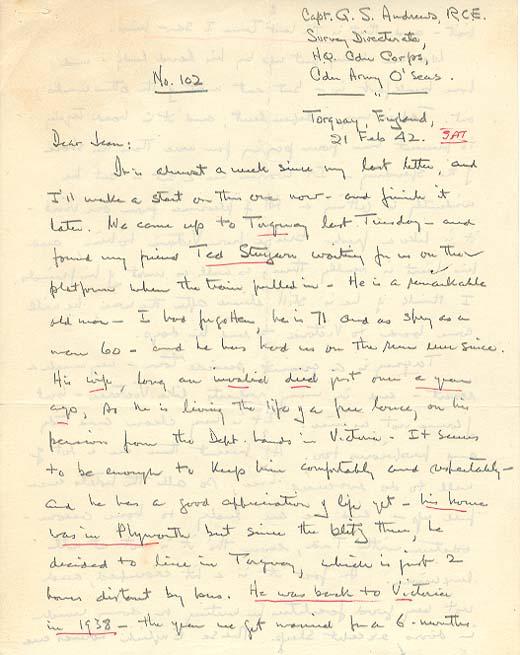 Capt. G. S. Andrews, RCE.
Survey Directorate,
HQ. Cdn Corps,
Cdn Army O'Seas.
No. 102
Torquay, England,
21 Feb 42. SAT
Dear Jean:
It is almost a week since my last letter, and
I'll make a start on this one now - and finish it
later. We came up to Torquay last Tuesday - and
found my friend Ted waiting for us on the
platform when the train pulled in - He is a remarkable
old man - I had forgotten, he is 71 and as spry as a
man 60 - and he has had us on the run ever since.
His wife, long an invalid died just over a year
ago, so he is living the life of a free lance, on his
pension from the Dept. Lands in Victoria - It seems
to be enough to keep him comfortably and respectably -
and he has a good appreciation of life yet - his home
was in Plymouth but since the blitz there, he
decided to live in Torquay, which is just 2
hours distant by bus. He was back to Victoria
in 1938 - the year we got married for a 6-months